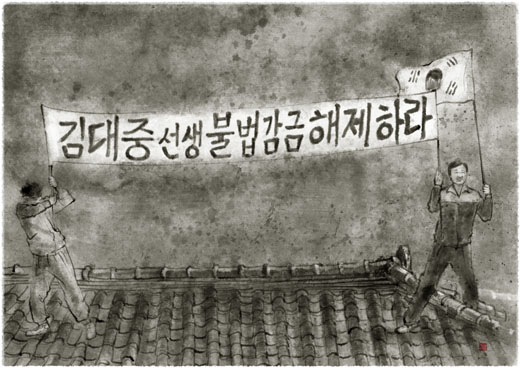 김대중 선생 불법감금 해제하라